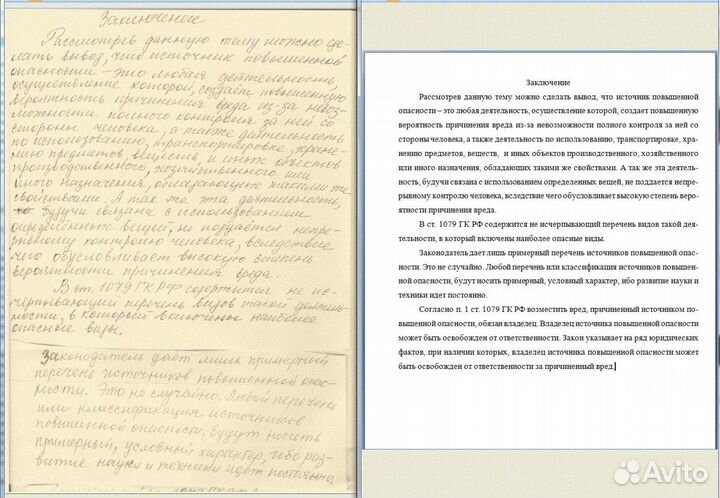 Заключение
Рассмотрев данную тему можно сде-
лать вывод, что источник повышенной
опасности – это любая деятельность,
осуществление которой, создает повышенную
вероятность причинения вреда из-за невоз-
можности полного контроля за ней со
стороны человека, а также деятельность
по использованию, транспортировке, хране-
нию предметов, веществ, и иных объектов
производственного, хозяйственного или
иного назначения, обладающих такими же
свойствами. А так же эта деятельность,
будучи связана с использованием
определенных вещей, не поддается непре-
рывному контролю человека, вследствие
чего обусловливает высокую степень
вероятности причинения вреда.
В ст. 1079 ГК РФ содержится не ис-
черпывающий перечень видов такой деятель-
ности, в который включены наиболее
опасные виды.
Законодатель дает лишь примерный
перечень источников повышенной опас-
ности. Это не случайно. Любой перечень
или классификация источников
повышенной опасности, будут носить
примерный, условный характер, ибо раз-
витие науки и техники идет постоянно.
Заключение
Рассмотрев данную тему можно сделать вывод, что источник повышенной
опасности – это любая деятельность, осуществление которой, создает повышенную
вероятность причинения вреда из-за невозможности полного контроля за ней со
стороны человека, а также деятельность по использованию, транспортировке, хра-
нению предметов, веществ, и иных объектов производственного, хозяйственного
или иного назначения, обладающих такими же свойствами. А так же эта деятель-
ность, будучи связана с использованием определенных вещей, не поддается непре-
рывному контролю человека, вследствие чего обусловливает высокую степень веро-
ятности причинения вреда.
В ст. 1079 ГК РФ содержится не исчерпывающий перечень видов такой дея-
тельности, в который включены наиболее опасные виды.
Законодатель дает лишь примерный перечень источников повышенной опас-
ности. Это не случайно. Любой перечень или классификация источников повышен-
ной опасности, будут носить примерный, условный характер, ибо развитие науки и
техники идет постоянно.
Согласно п. 1 ст. 1079 ГК РФ возместить вред, причиненный источником по-
вышенной опасности, обязан владелец. Владелец источника повышенной опасности
может быть освобожден от ответственности. Закон указывает на ряд юридических
фактов, при наличии которых, владелец источника повышенной опасности может
быть освобожден от ответственности за причиненный вред.
Avito